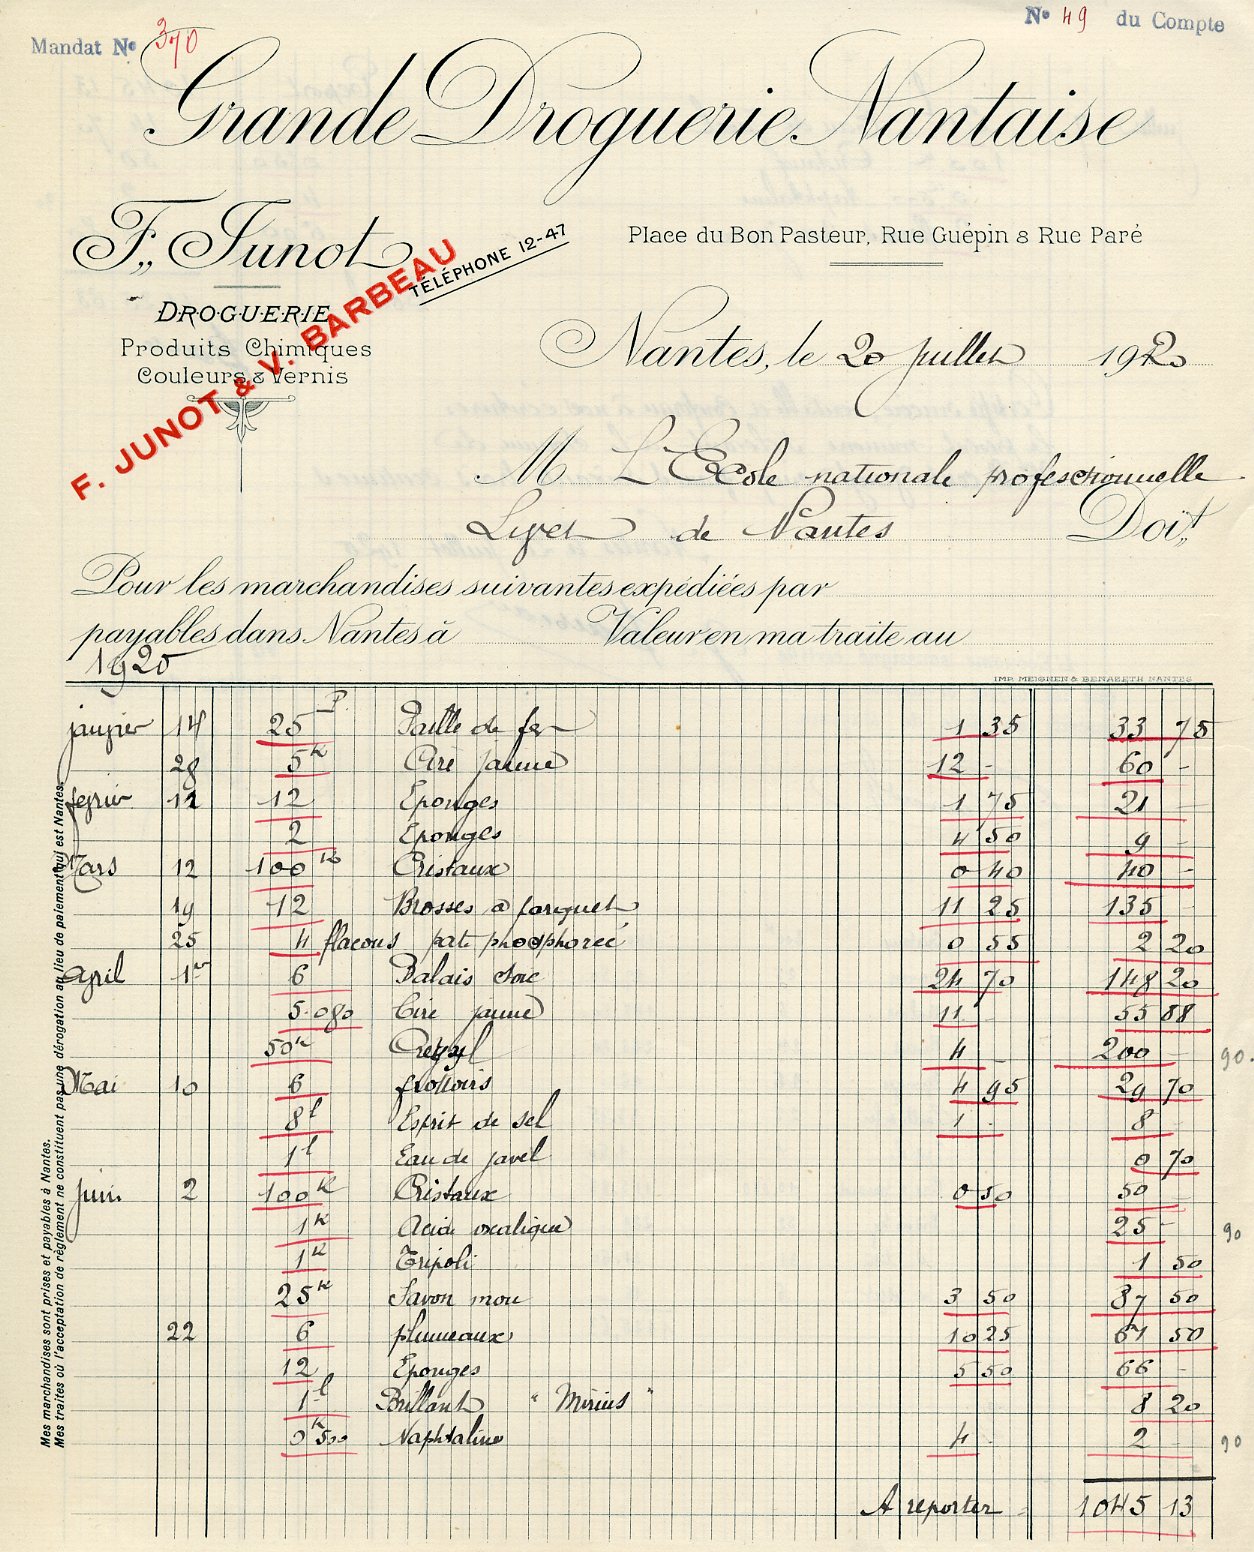 Mandat No 370
No 49 du Compte
Grande Droguerie Nantaise
F. Junot
Place du Bon Pasteur, Rue Guépin & Rue Paré
TÉLÉPHONE 12-47
F. JUNOT & V. BARBEAU
DROGUERIE
Produits Chimiques
Couleurs & Vernis
Nantes, le 20 juillet 1920
M L'Ecole nationale professionnelle
Livet de Nantes Doit
Pour les marchandises suivantes expédiées par
payables dans Nantes à Valeur en ma traite au
1920
IMP. MEIGNEN & BENABETH NANTES
janvier 14 25 P. Paille de fer 1 35 33 75
28 5 K Cire jaune 12 - 60 -
février 12 12 Eponges 1 75 21 -
2 Eponges 4 50 9 -
Mars 12 100 K Cristaux 0 40 40 -
19 12 Brosses à parquet 11 25 135 -
25 4 flacons pate phosphorée 0 55 2 20
April 1er 6 Balais soie 24 70 148 20
5.080 Cire jaune 11 55 88
50 K Cresyl 4 - 200 - 90.
Mai 10 6 frottoirs 4 95 29 70
8 l Esprit de sel 1 - 8 -
1 l Eau de javel 0 70
juin 2 100 K Cristaux 0 50 50 -
1 K Acide oxalique 25 - 90
1 K Tripoli 1 50
25 K Savon mou 3 50 87 50
22 6 plumeaux 10 25 61 50
12 Eponges 5 50 66 -
1 l Brillant " Mirius " 8 20
0 K 500 Naphtaline 4 - 2 - 90
A reporter 1045 13
Mes marchandises sont prises et payables à Nantes.
Mes traites ou l'acceptation de règlement ne constituent pas une dérogation au lieu de paiement qui est Nantes.